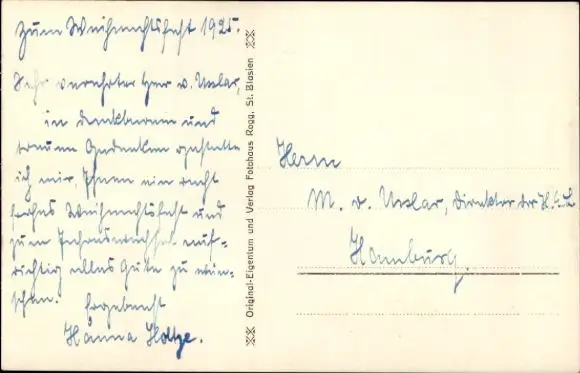 Zum Weihnachtsfest 1925.
Sehr verehrter Herr v. Uslar,
in dankbarem und
treuem Gedenken gestatte
ich mir, Ihnen ein recht
frohes Weihnachtsfest und
zum Jahreswechsel auf-
richtig alles Gute zu wün-
schen. Ergebenst
Hanna Holtze.
Original-Eigentum und Verlag Fotohaus Rogg, St. Blasien
Herrn
M. v. Uslar, Direktor der H.
Hamburg.